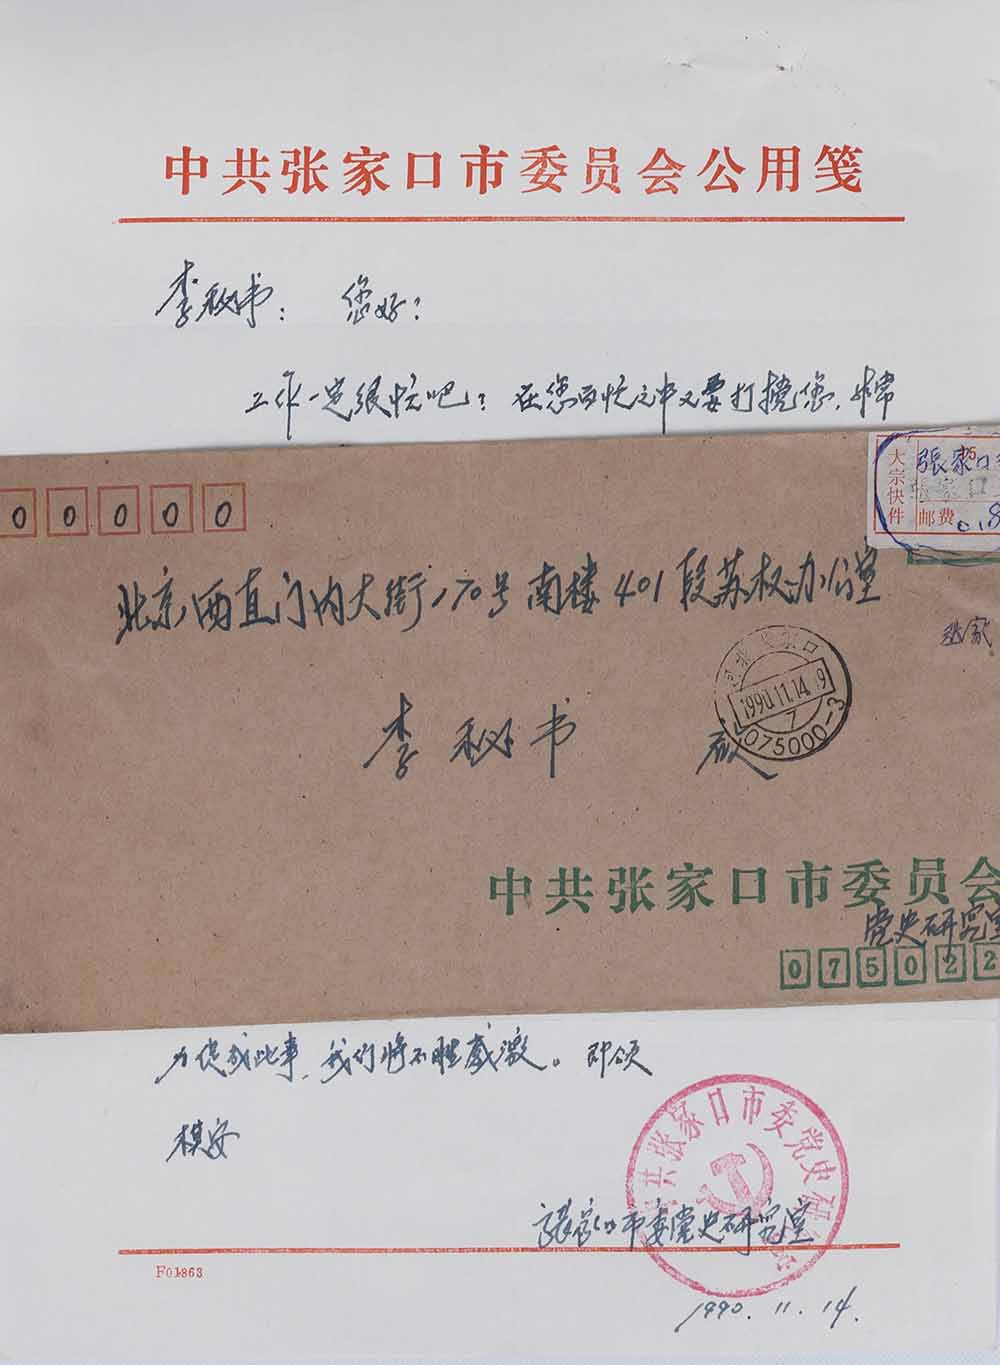 中共张家口市委员会公用笺
李秘书： 您好！
工作一定很忙吧？在您百忙之中又要打搅您，非常
大宗快件
張家口
张家口
邮费
0 0 0 0 0
北京西直门内大街170号南楼401段苏权办公室
李秘书 收
河北张家口
1990.11.14.19
7
075000-3
中共张家口市委员会
党史研究室
0 7 5 0 2 2
力促成此事，我们将不胜感激。即颂
祺安
中共张家口市委党史研究室
张家口市委党史研究室
F01863
1990.11.14.